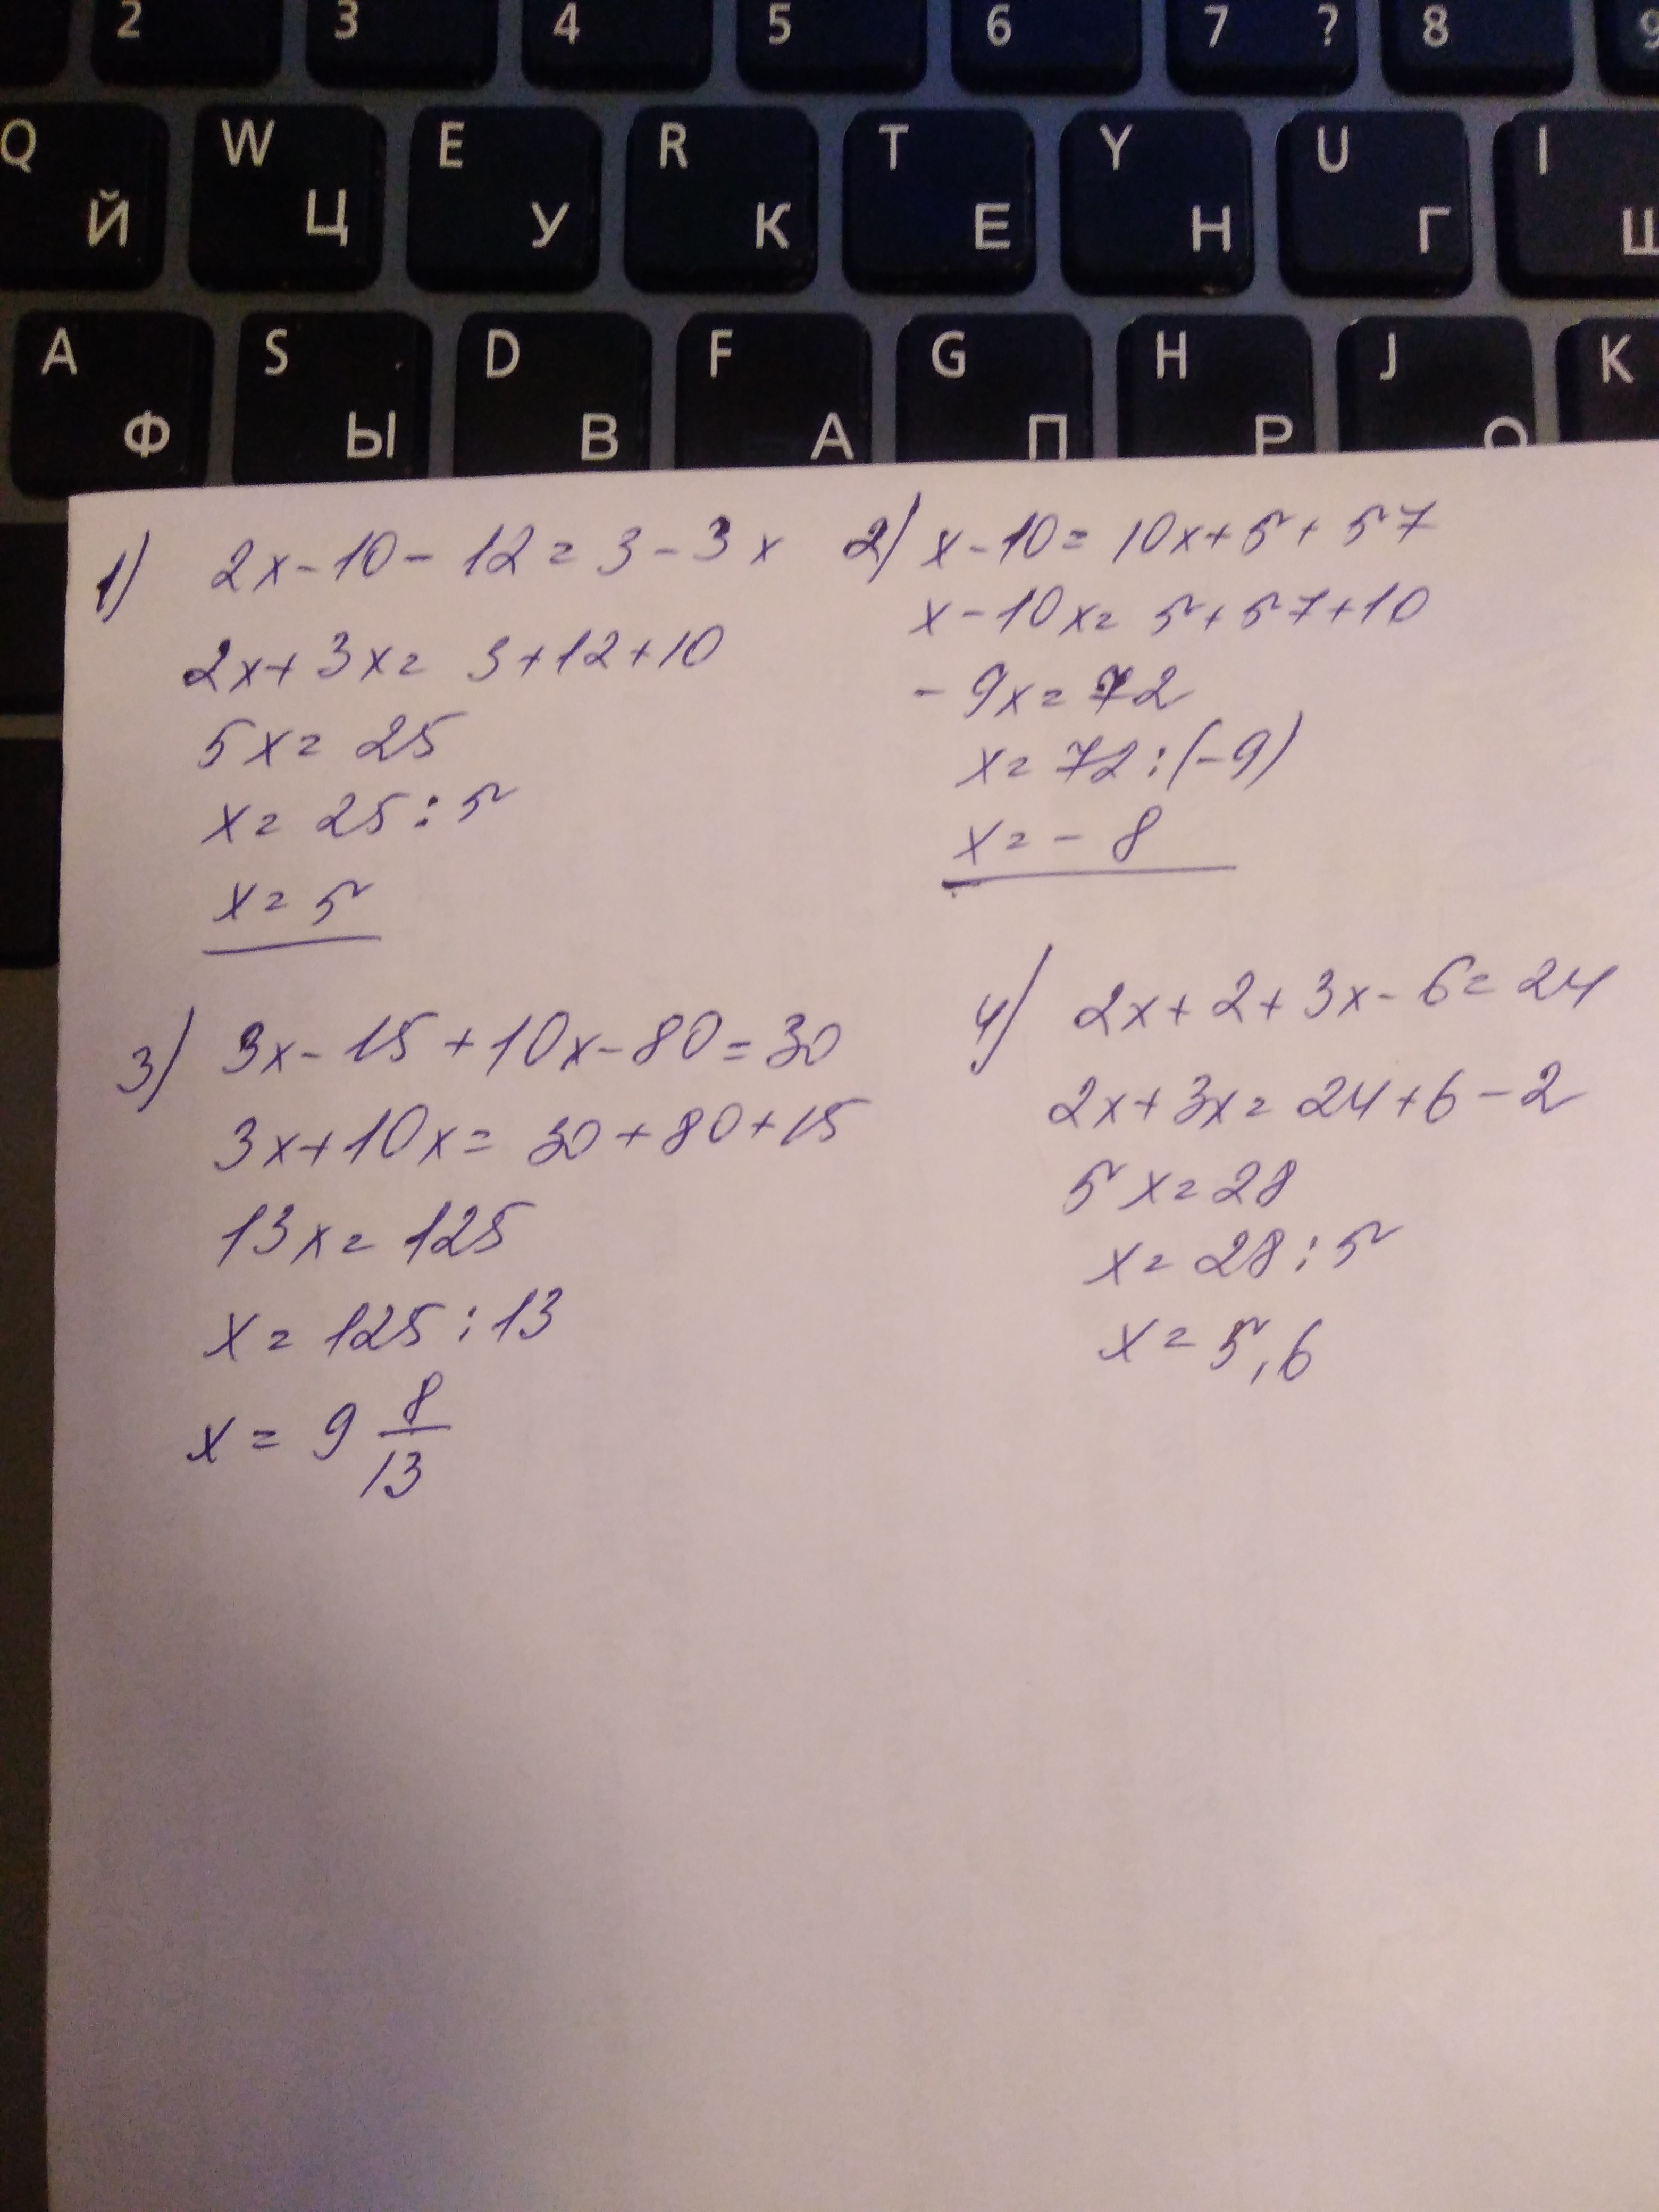 2 3 4 5 6 7 ? 8 9
Q W E R T Y U I
Й Ц У К Е Н Г Ш
A S D F G H J K
Ф Ы В А П Р О
1) 2x-10-12=3-3x
2x+3x=3+12+10
5x=25
x=25:5
x=5
2) x-10=10x+5+57
x-10x=5+57+10
-9x=72
x=72:(-9)
x=-8
3) 3x-15+10x-80=30
3x+10x=30+80+15
13x=125
x=125:13
x=9 8/13
4) 2x+2+3x-6=24
2x+3x=24+6-2
5x=28
x=28:5
x=5,6